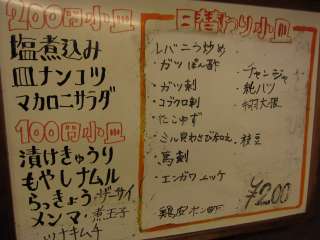 200円小皿
塩煮込み
皿ナンコツ
マカロニサラダ
100円小皿
漬けきゅうり
もやしナムル
らっきょう ザーサイ
メンマ・煮玉子
ツナキムチ
日替わり小皿
レバニラ炒め
・ガツ ぽん酢
・ガツ刺
・コブクロ刺
・たこゆず
・ミル貝わさび和え
・馬刺
・エンガワユッケ
・チャンジャ
・純ハツ
・枝豆
¥200